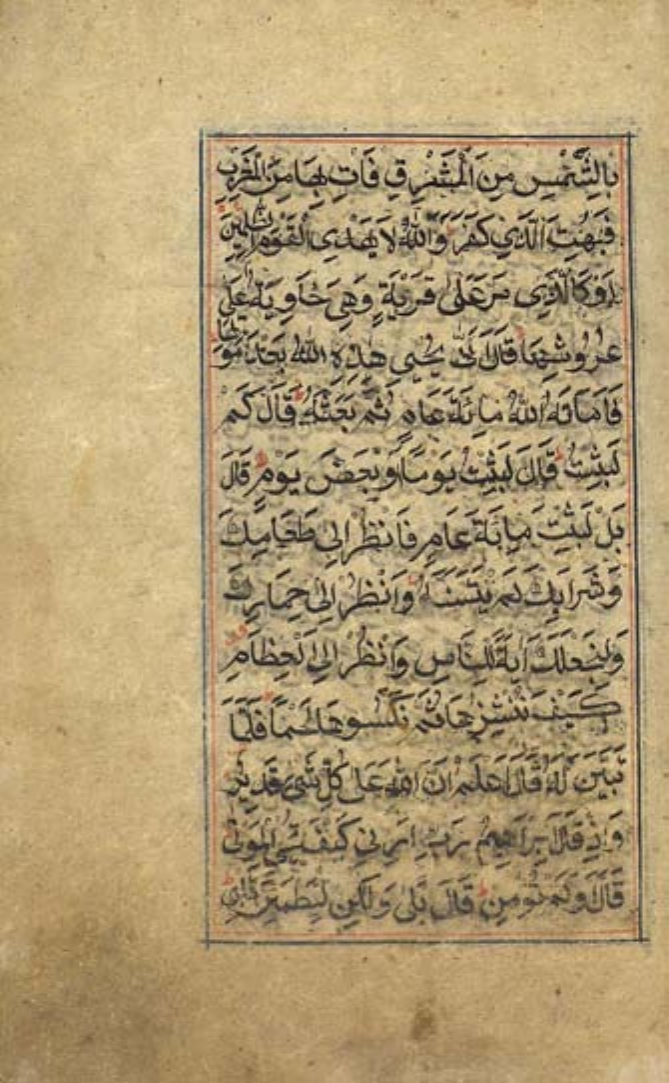 بِالشَّمْسِ مِنَ الْمَشْرِقِ فَاتِ بِهَا مِنَ الْمَغْرِبِ
فَبُهِتَ الَّذِي كَفَرَ وَاللّٰهُ لَا يَهْدِي الْقَوْمَ الظّٰلِمِينَ
اَوْ كَالَّذِي مَرَّ عَلٰى قَرْيَةٍ وَهِيَ خَاوِيَةٌ عَلٰى
عُرُوشِهَا قَالَ اَنّٰى يُحْيِي هٰذِهِ اللّٰهُ بَعْدَ مَوْتِهَا
فَاَمَاتَهُ اللّٰهُ مِائَةَ عَامٍ ثُمَّ بَعَثَهُ قَالَ كَمْ
لَبِثْتَ قَالَ لَبِثْتُ يَوْمًا اَوْ بَعْضَ يَوْمٍ قَالَ
بَلْ لَبِثْتَ مِائَةَ عَامٍ فَانْظُرْ اِلٰى طَعَامِكَ
وَشَرَابِكَ لَمْ يَتَسَنَّهْ وَانْظُرْ اِلٰى حِمَارِكَ
وَلِنَجْعَلَكَ اٰيَةً لِلنَّاسِ وَانْظُرْ اِلَى الْعِظَامِ
كَيْفَ نُنْشِزُهَا ثُمَّ نَكْسُوهَا لَحْمًا فَلَمَّا
تَبَيَّنَ لَهُ قَالَ اَعْلَمُ اَنَّ اللّٰهَ عَلٰى كُلِّ شَيْءٍ قَدِيرٌ
وَاِذْ قَالَ اِبْرَاهِيمُ رَبِّ اَرِنِي كَيْفَ تُحْيِي الْمَوْتٰى
قَالَ اَوَلَمْ تُؤْمِنْ قَالَ بَلٰى وَلٰكِنْ لِيَطْمَئِنَّ قَلْبِي